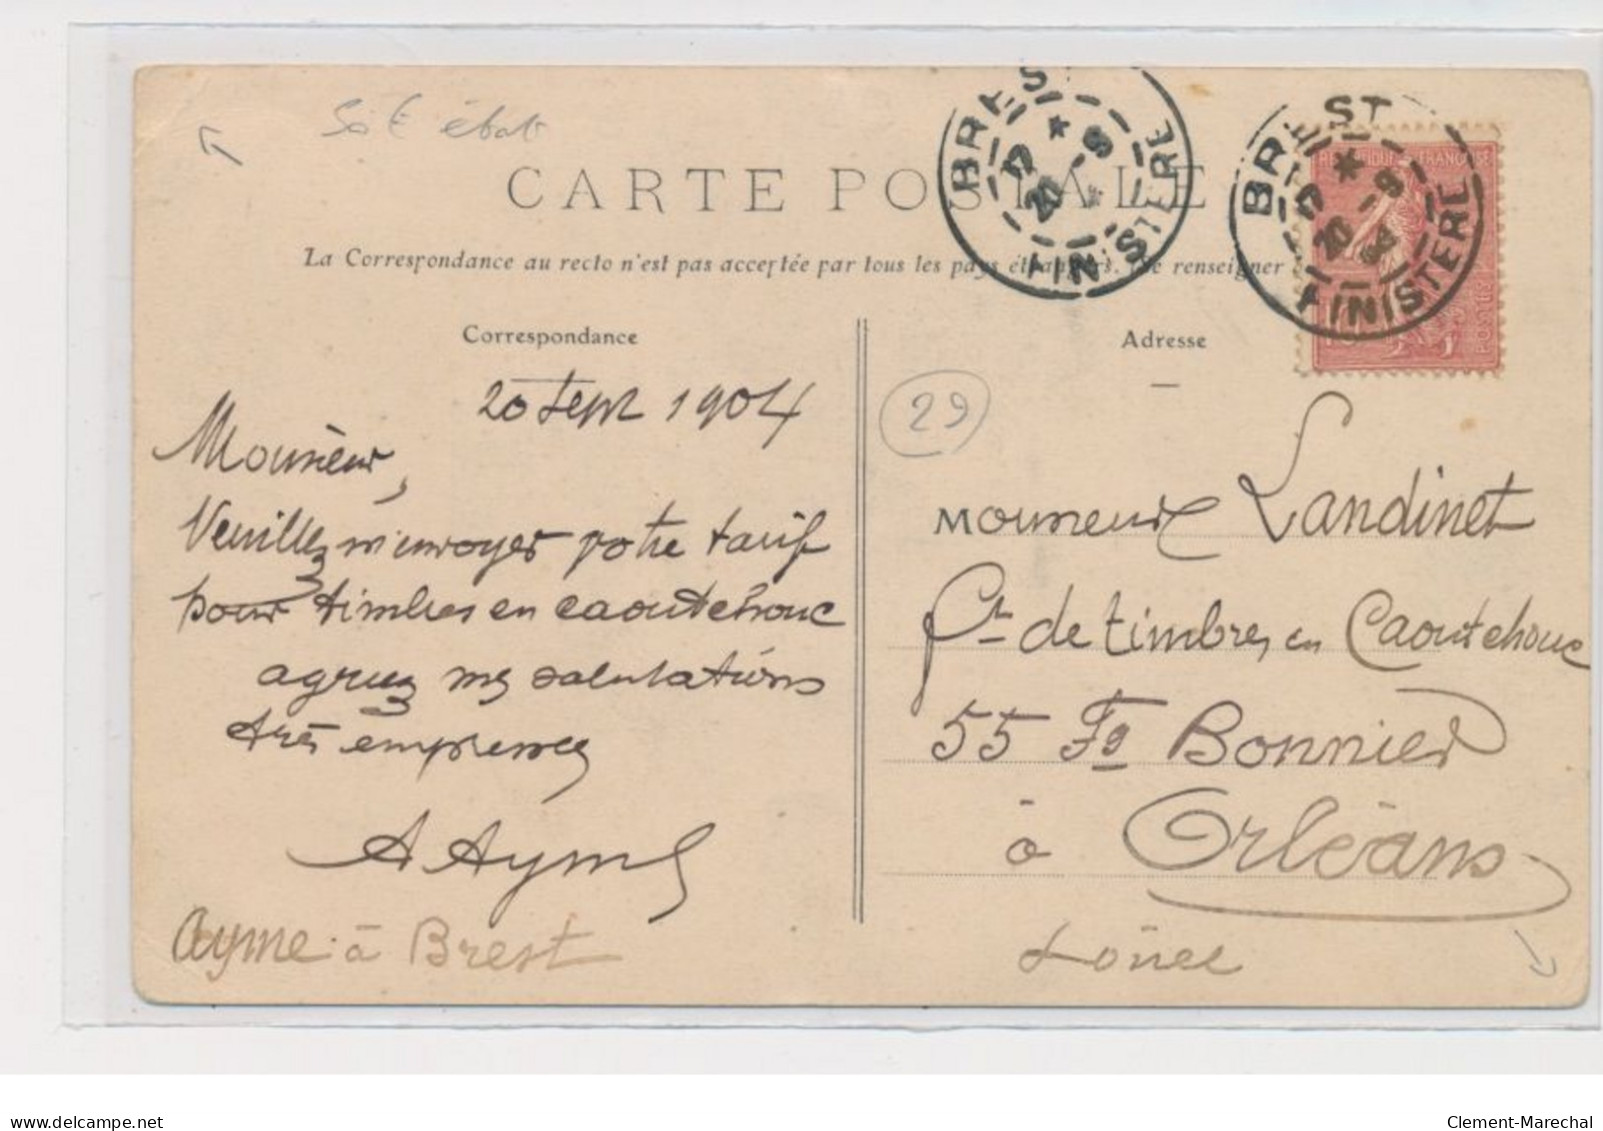 état
CARTE POSTALE
La Correspondance au recto n'est pas acceptée par tous les pays étrangers. Se renseigner
BREST
17 * 20 -9
FINISTERE
BREST
17 * 20 -9 04
FINISTERE
REPUBLIQUE FRANÇAISE
POSTES
Correspondance
20 Sept 1904
Monsieur,
Veuillez m'envoyer votre tarif
pour timbres en caoutchouc
agréez mes salutations
très empressées
A Ayme
Ayme à Brest
Adresse
29
Monsieur Landinet
Ft de timbres en Caoutchouc
55 Fg Bonnier
à Orléans
Loiret
delcampe.net
Clement-Marechal